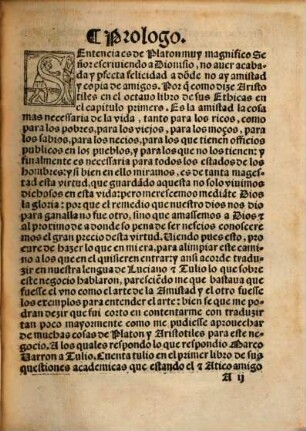 ¶ Prologo.
SEntencia es de Platon muy magnifico Se
ñor escriviendo a Dionisio, no auer acaba
da y pfecta felicidad a dōde no ay amistad
y copia de amigos. Por q̃ como dize Aristo
tiles en el octauo libro de sus Ethicas en
el capitulo primero. Es la amistad la cosa
mas necessaria de la vida, tanto para los ricos, como
para los pobres, para los viejos, para los moços, para
los sabios, para los necios, para los que tienen officios
publicos en los pueblos, y para los que no los tienen: y
finalmente es necessaria para todos los estados de los
hombres: y si bien en ello miramos, es de tanta mages
tad esta virtud, que guardādo aquesta no solo viuimos
dichosos en esta vida: pero merescemos mediāte Dios
la gloria: por que el remedio que nuestro dios nos dio
para ganalla no fue otro, sino que amassemos a Dios ⁊
al proximo de a donde so pena de ser nescios conoscere
mos el gran precio desta virtud. Siendo pues esto, pro
cure de hazer lo que en mi era, para alimpiar este cami
no a los que en el quisieren entrar: y ansi acorde traduzir
en nuestra lengua de Luciano ⁊ Tulio lo que sobre
este negocio hablaron, paresciēdo me que bastaua que
fuesse el vno como el arte de la Amistad y el otro fuesse
los exemplos para entender el arte: bien se que me po
dran dezir que fui corto en contentarme con traduzir
tan poco mayormente como me pudiesse aprouechar
de muchas cosas de Platon y Aristotiles para este ne
gocio. A los quales respondo lo que respondio Marco
Varron a Tulio. Cuenta tulio en el primer libro de sus
questiones academicas que estando el ⁊ Atico amigo
A ij